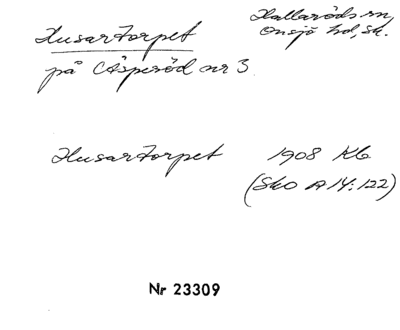 Husartorpet
på Åsperöd nr 3
Hallaröds sn,
Onsjö hd, Sk.
Husartorpet 1908 Kb
(SkO A 14:122)
Nr 23309